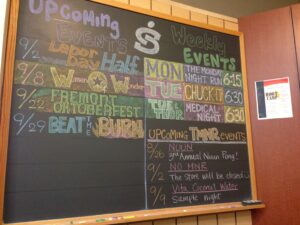 Upcoming
EVENTS
9/2 Labor Day Half
9/8 Women Of Wonder
9/22 FREMONT OKTOBERFEST
9/29 BEAT the BURN
Weekly
EVENTS
MON THE MONDAY NIGHT RUN 6:15
TUE CHUCKIT 6:30
TUE & THUR MEDICAL NIGHT 6:30
UPCOMING TMNR EVENTS
8/26 NUUN
3rd Annual Nuun Pong!
9/2 NO MNR
The Store will be closed
9/9 Vita Coconut Water
Sample Night